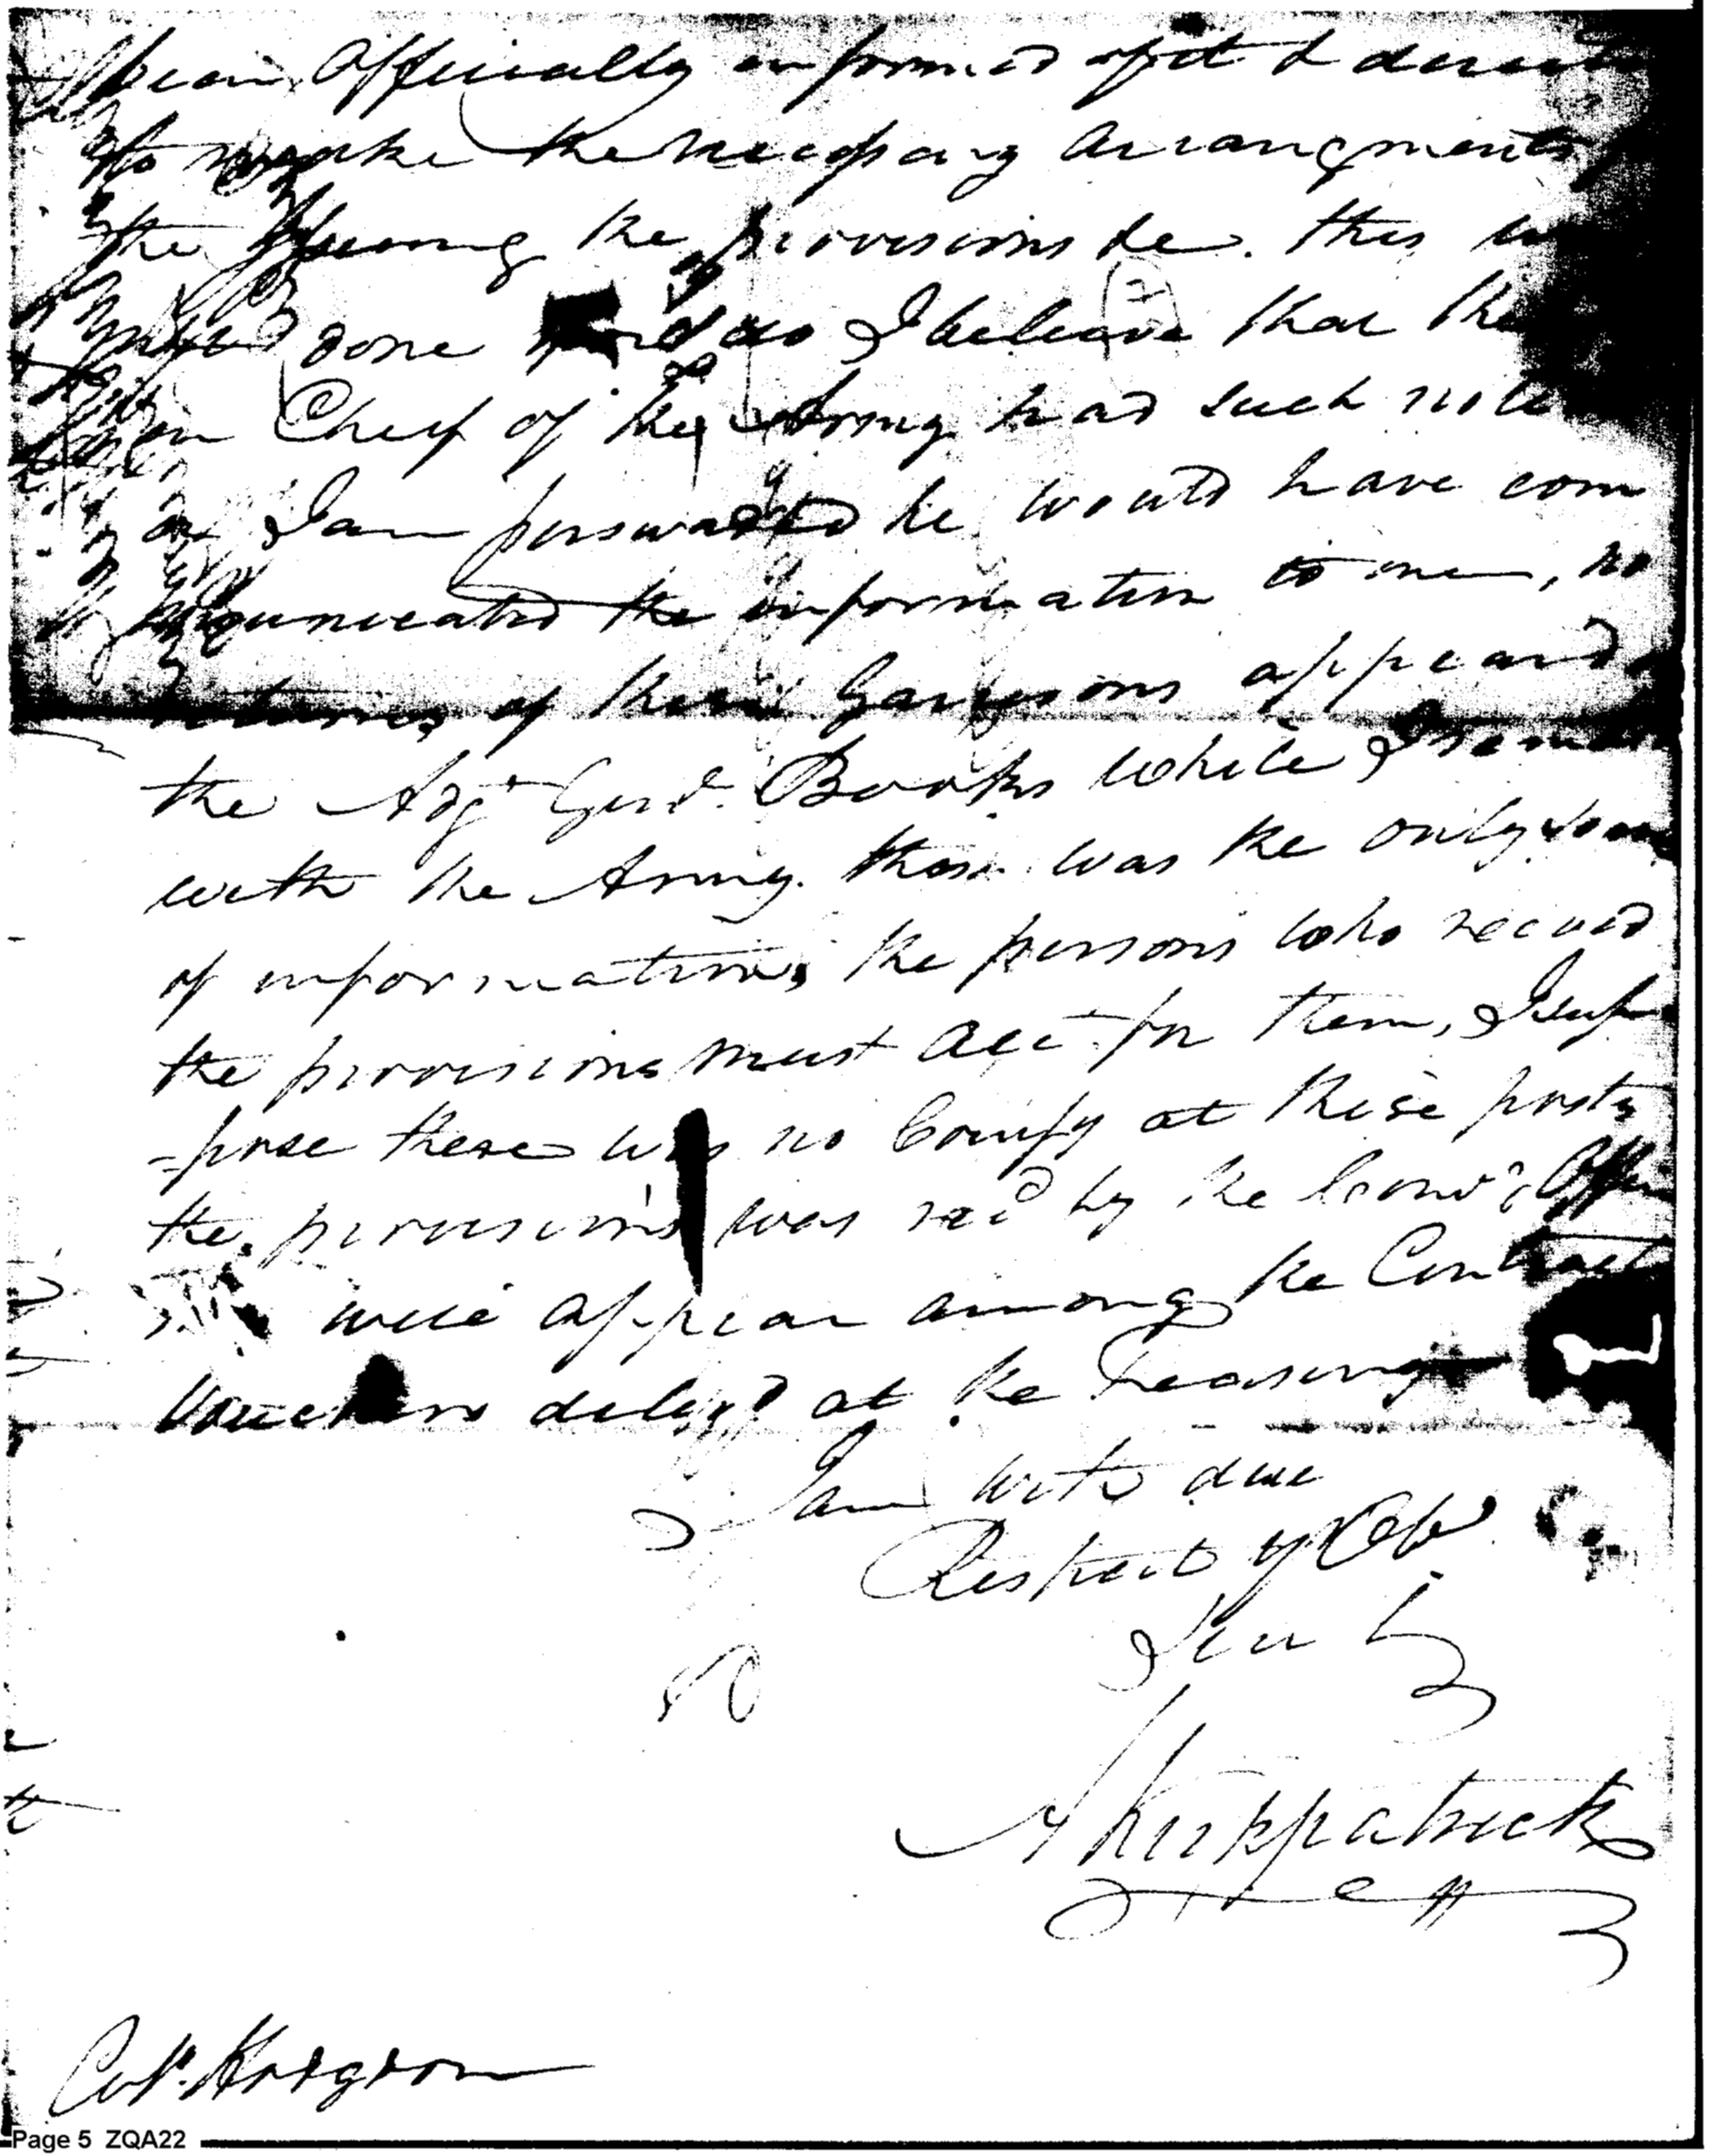 been Officially informed of it &
to make the necessary Arrangments
the Issuing the provisions &c. this
done I beleave that the
in Cheif of the Army had such
I am perswaded he would have com
municated the information to me, no
returns of these Garrisons appeard
the Adjt Genl. Books while I
with the Army. these was the only
of information, the persons who received
the provisions must acct. for them, I sup
-pose there was no Comsy at these posts
the provisions was recd by the Comdg
will appear among the Contract
Vouchers delivd at the Treasury
I am with due
Respect yr Obt
Servt
A Kirkpatrick
Colo. Hodgdon
Page 5 ZQA22